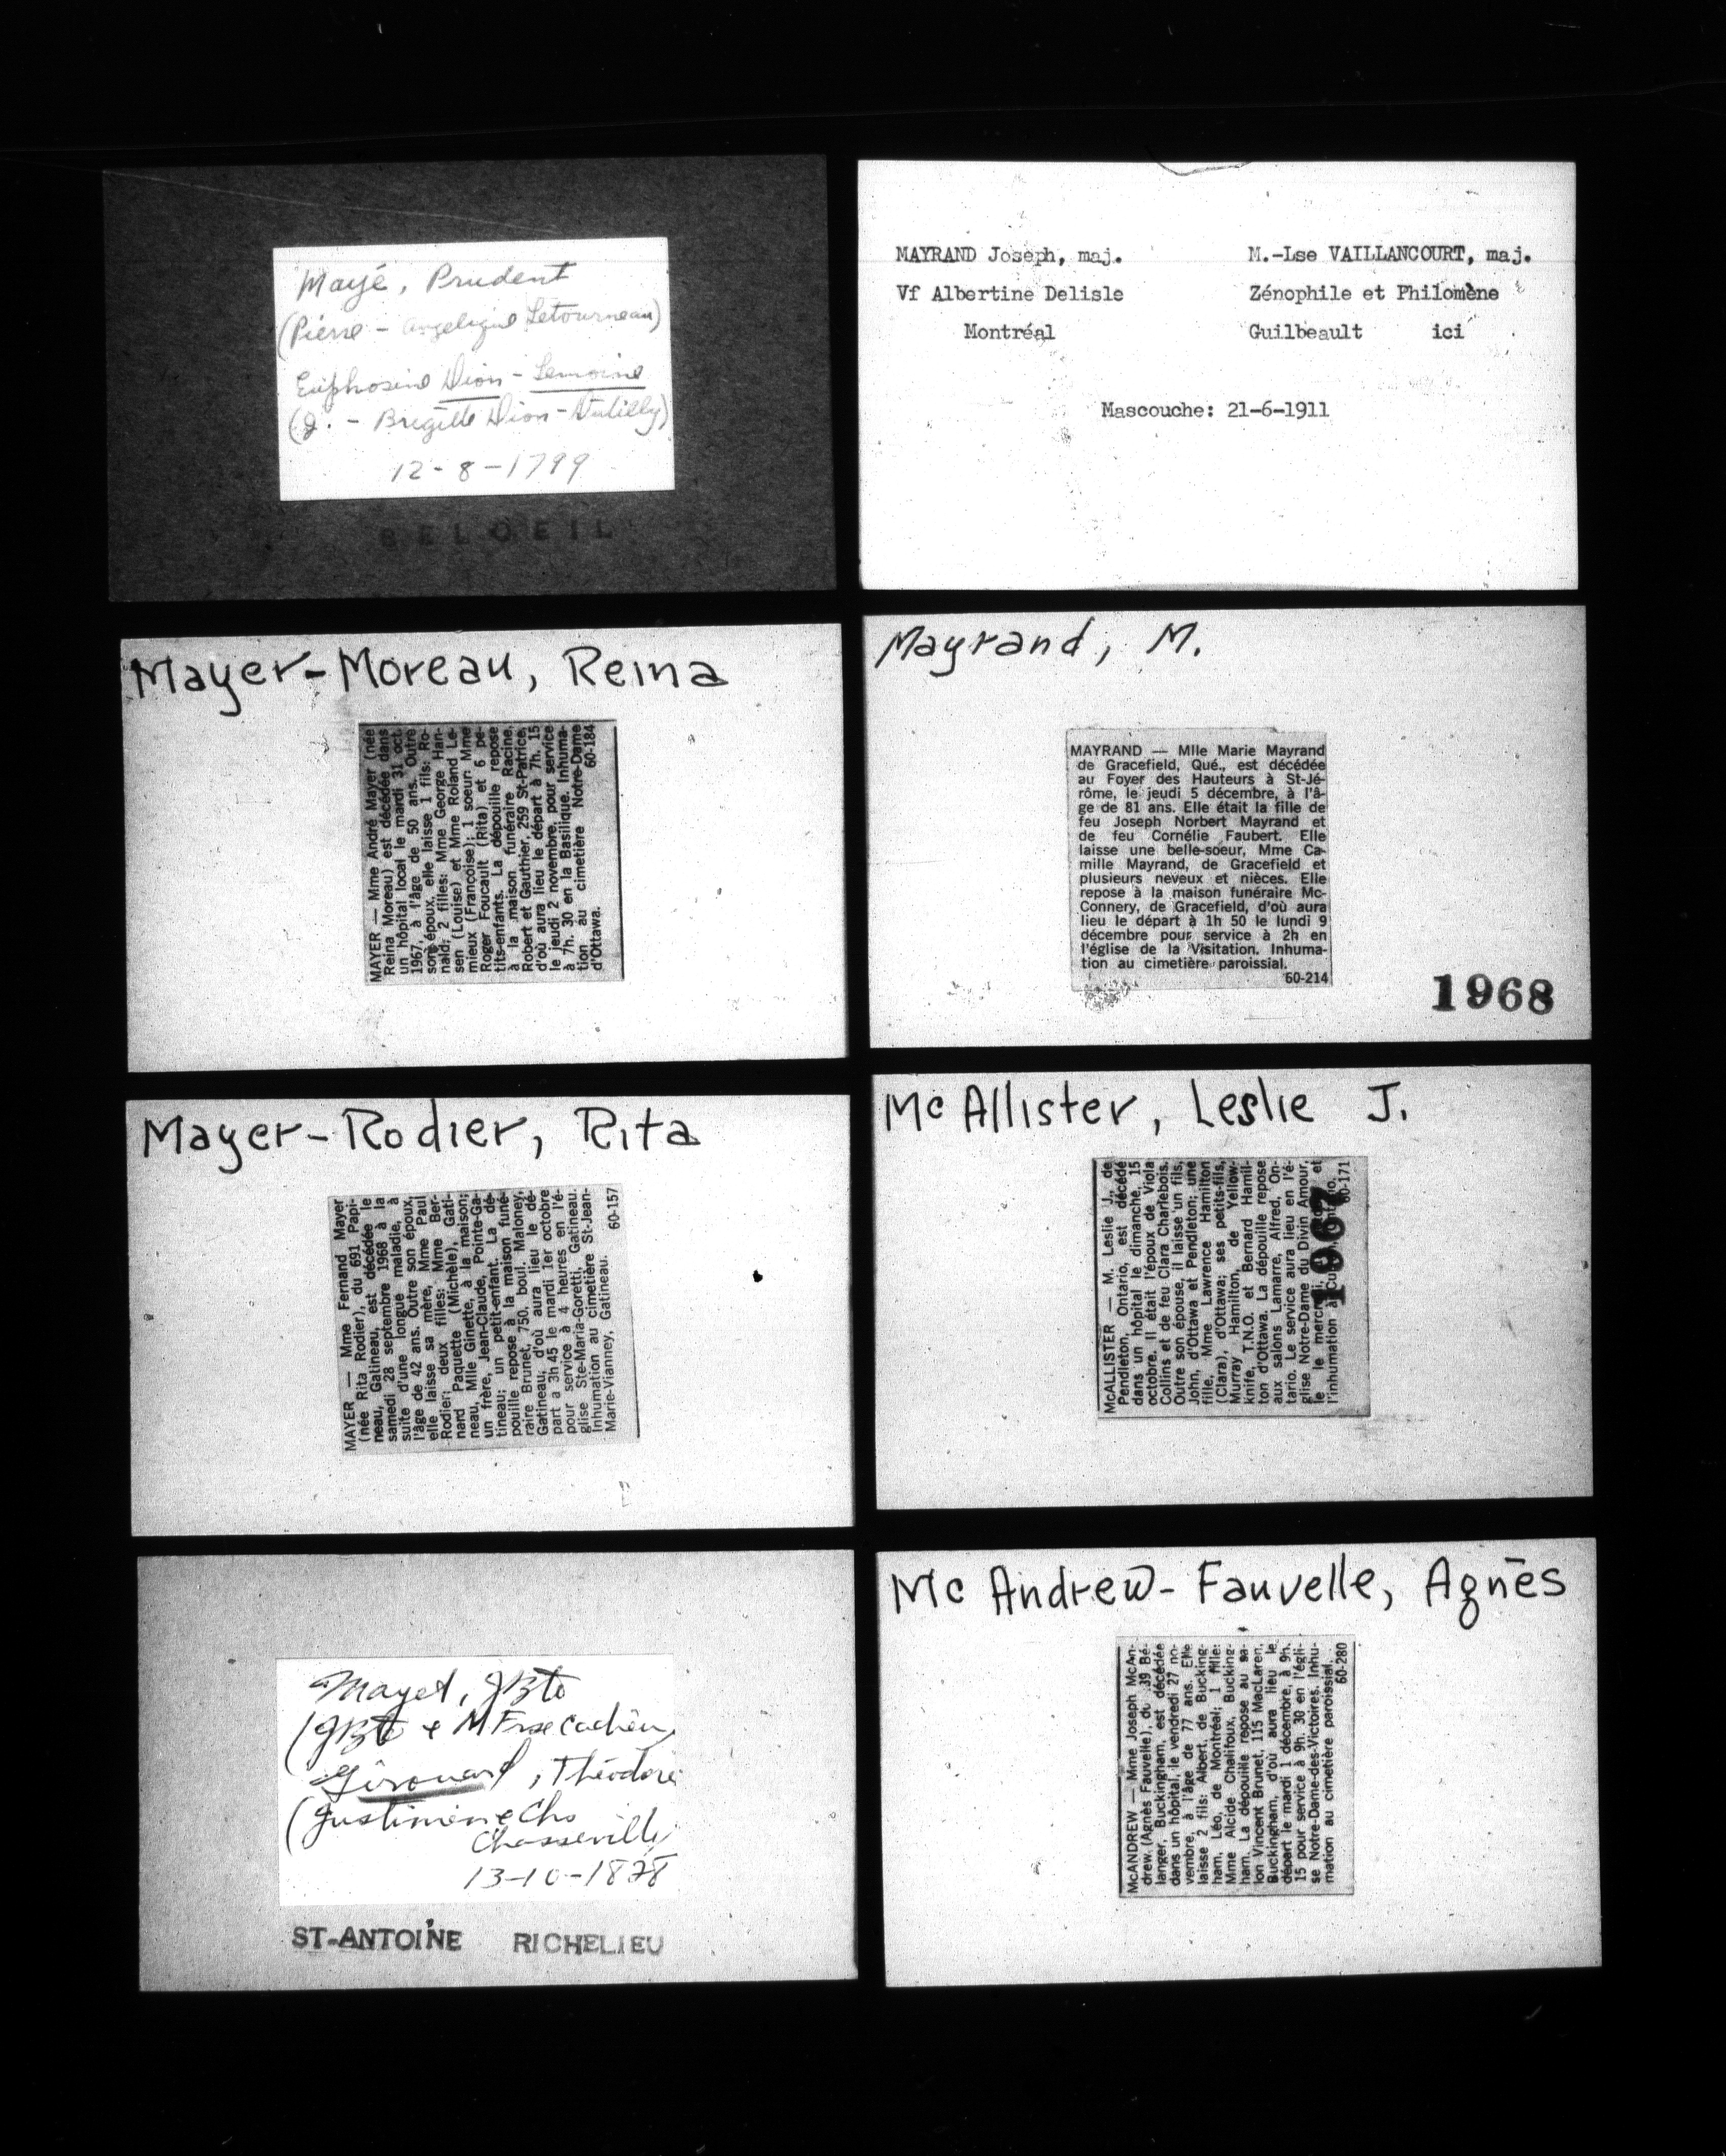 Mayé, Prudent
(Pierre - Angelique Letourneau)
Euphrosine Dion - Lemoine
(J. - Brigitte Dion-Dutilly)
12-8-1799
BELOEIL
MAYRAND Joseph, maj.
Vf Albertine Delisle
Montréal
M.-Lse VAILLANCOURT, maj.
Zénophile et Philomène
Guilbeault ici
Mascouche: 21-6-1911
Mayer-Moreau, Reina
MAYER — Mme André Mayer (née
Reina Moreau) est décédée dans
un hôpital local le mardi 31 oct.
1967, à l'âge de 50 ans. Outre
son époux, elle laisse 1 fils: Ro-
nald; 2 filles: Mme George Han-
sen (Louise) et Mme Roland Le-
mieux (Françoise); 1 soeur: Mme
Roger Foucault (Rita) et 6 pe-
tits-enfants. La dépouille repose
à la maison funéraire Racine,
Robert et Gauthier, 259 St-Patrice,
d'où aura lieu le départ à 7h. 15
le jeudi 2 novembre, pour service
à 7h. 30 en la Basilique. Inhuma-
tion au cimetière Notre-Dame
d'Ottawa. 60-184
Mayrand, M.
MAYRAND — Mlle Marie Mayrand
de Gracefield, Qué., est décédée
au Foyer des Hauteurs à St-Jé-
rôme, le jeudi 5 décembre, à l'â-
ge de 81 ans. Elle était la fille de
feu Joseph Norbert Mayrand et
de feu Cornélie Faubert. Elle
laisse une belle-soeur, Mme Ca-
mille Mayrand, de Gracefield et
plusieurs neveux et nièces. Elle
repose à la maison funéraire Mc-
Connery, de Gracefield, d'où aura
lieu le départ à 1h 50 le lundi 9
décembre pour service à 2h en
l'église de la Visitation. Inhuma-
tion au cimetière paroissial.
60-214
1968
Mayer-Rodier, Rita
MAYER — Mme Fernand Mayer
(née Rita Rodier), du 691 Papi-
neau, Gatineau, est décédée le
samedi 28 septembre 1968 à la
suite d'une longue maladie, à
l'âge de 42 ans. Outre son époux,
elle laisse sa mère, Mme Paul
Rodier; deux filles: Mme Ber-
nard Paquette (Michèle), Gati-
neau, Mlle Ginette, à la maison;
un frère, Jean-Claude, Pointe-Ga-
tineau; un petit-enfant. La dé-
pouille repose à la maison funé-
raire Brunet, 750, boul. Maloney,
Gatineau, d'où aura lieu le dé-
part a 3h 45 le mardi 1er octobre
pour service à 4 heures en l'é-
glise Ste-Maria-Goretti, Gatineau.
Inhumation au cimetière St-Jean-
Marie-Vianney, Gatineau. 60-157
McAllister, Leslie J.
McALLISTER — M. Leslie J., de
Pendleton, Ontario, est décédé
dans un hôpital le dimanche, 15
octobre. Il était l'époux de Viola
Collins et de feu Clara Charlebois.
Outre son épouse, il laisse un fils,
John, d'Ottawa et Pendleton; une
fille, Mme Lawrence Hamilton
(Clara), d'Ottawa; ses petits-fils,
Murray Hamilton, de Yellow-
knife, T.N.O. et Bernard Hamil-
ton d'Ottawa. La dépouille repose
aux salons Lamarre, Alfred, On-
tario. Le service aura lieu en l'é-
glise Notre-Dame du Divin Amour,
le mercredi et
l'inhumation à 60-171
1967
Mayet, JBte
(JBte & M Frse Cachieu)
Girouard, Théodore
(Justinien & Chs
Chasseville)
13-10-1828
ST-ANTOINE RICHELIEU
Mc Andrew-Fauvelle, Agnès
McANDREW — Mme Joseph McAn-
drew (Agnès Fauvelle), du 39 Bé-
langer, Buckingham, est décédée
dans un hôpital, le vendredi 27 no-
vembre, à l'âge de 77 ans. Elle
laisse 2 fils: Albert, de Bucking-
ham, Léo, de Montréal; 1 fille:
Mme Alcide Chalifoux, Bucking-
ham. La dépouille repose au sa-
lon Vincent Brunet, 115 MacLaren,
Buckingham, d'où aura lieu le
départ le mardi 1 décembre, à 9h.
15 pour service à 9h. 30 en l'égli-
se Notre-Dame-des-Victoires. Inhu-
mation au cimetière paroissial.
60-280